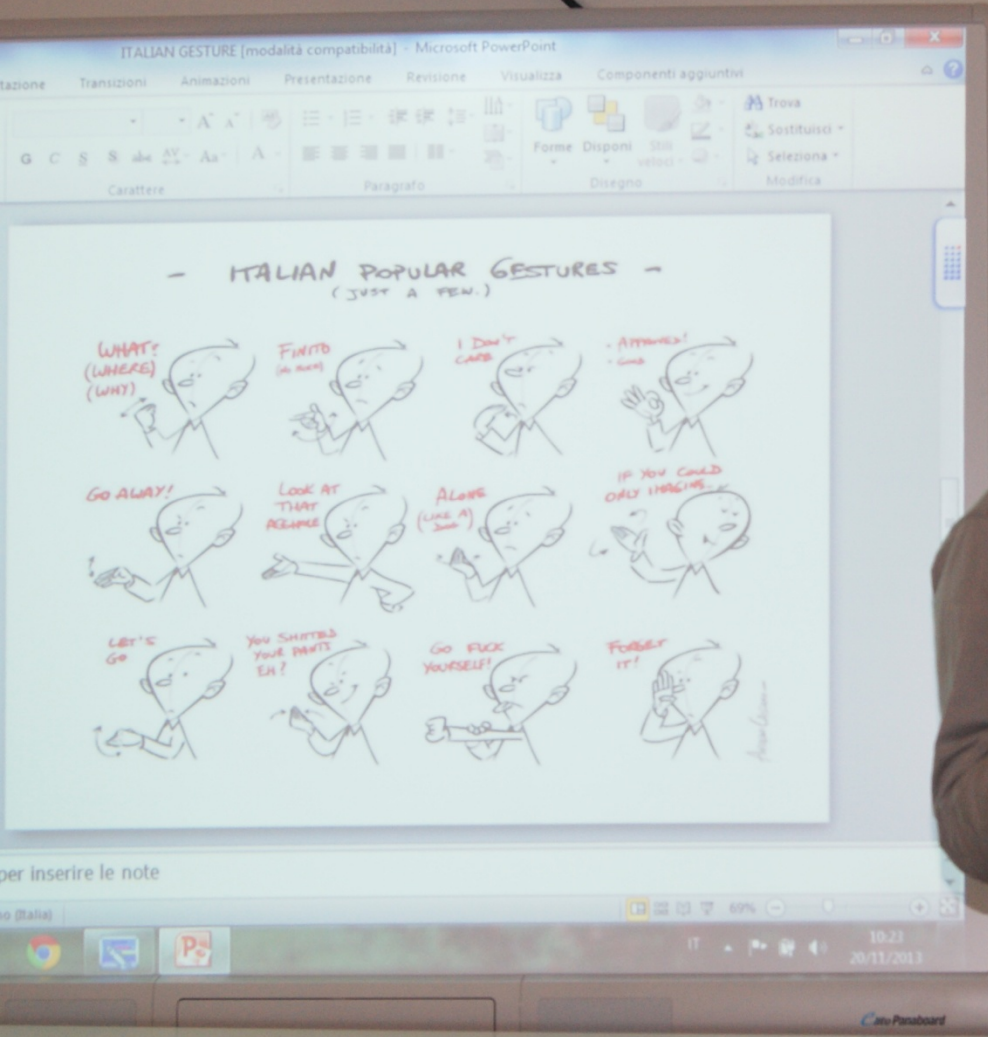 ITALIAN GESTURE [modalità compatibilità] - Microsoft PowerPoint
tazione Transizioni Animazioni Presentazione Revisione Visualizza Componenti aggiuntivi
Trova
Forme Disponi Stili veloci
Sostituisci
G C S S abc AV Aa A
Seleziona
Carattere Paragrafo Disegno Modifica
- ITALIAN POPULAR GESTURES -
(JUST A FEW.)
WHAT?
(WHERE)
(WHY)
FINITO
I DON'T
CARE
GO AWAY!
LOOK AT
THAT
ALONE
(LIKE A)
IF YOU COULD
ONLY IMAGINE...
LET'S
GO
YOU SHITTED
YOUR PANTS
EH?
GO FUCK
YOURSELF!
FORGET
IT!
per inserire le note
no (Italia)
69%
IT
10:23
20/11/2013
Panaboard